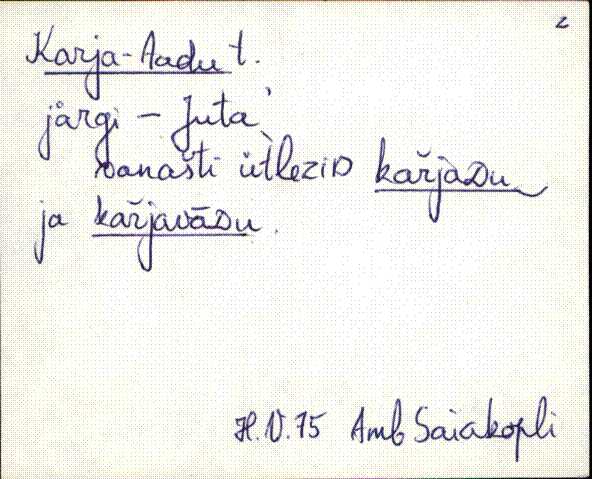 2
Karja-Aadu t.
järgi – Juta,
vanašti ütlezid kařjaᴅu
ja kařjavāᴅu.
H.V.75 Amb Saiakopli